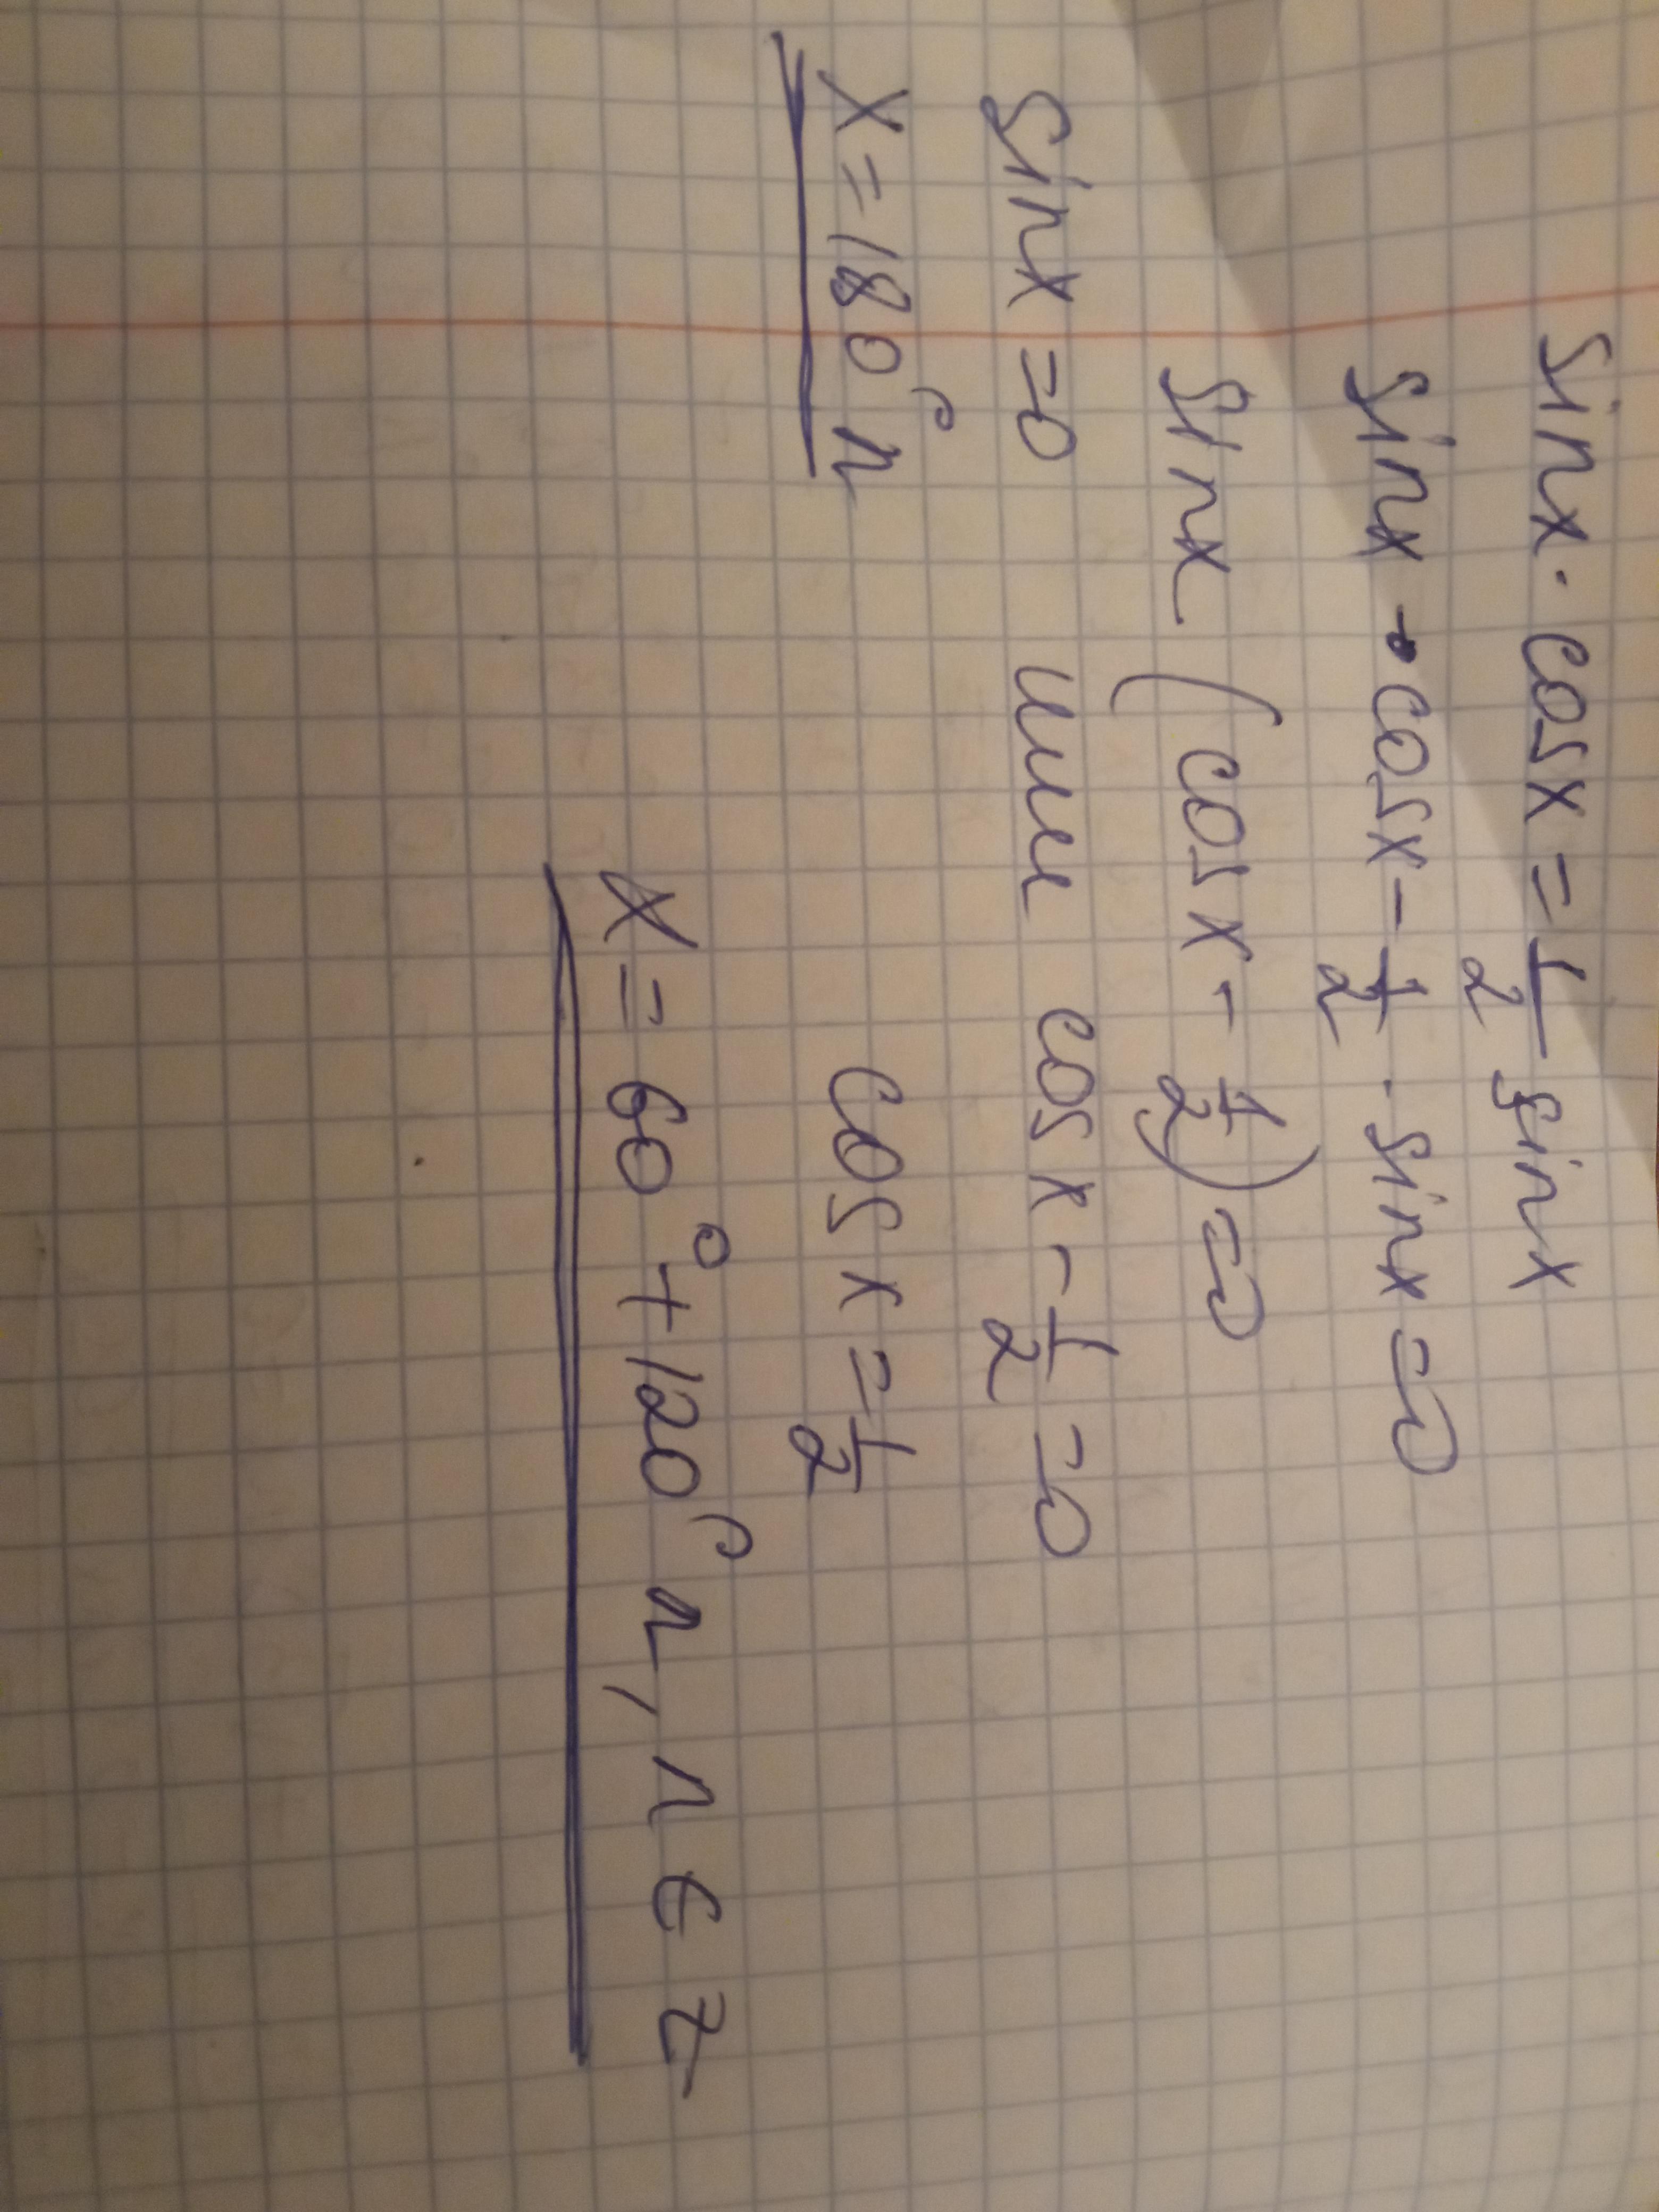 sinx · cosx = 1/2 sinx
sinx · cosx - 1/2 · sinx = 0
sinx (cosx - 1/2) = 0
sinx = 0 или cosx - 1/2 = 0
x = 180° n cosx = 1/2
x = 60° + 120° n, n ∈ Z